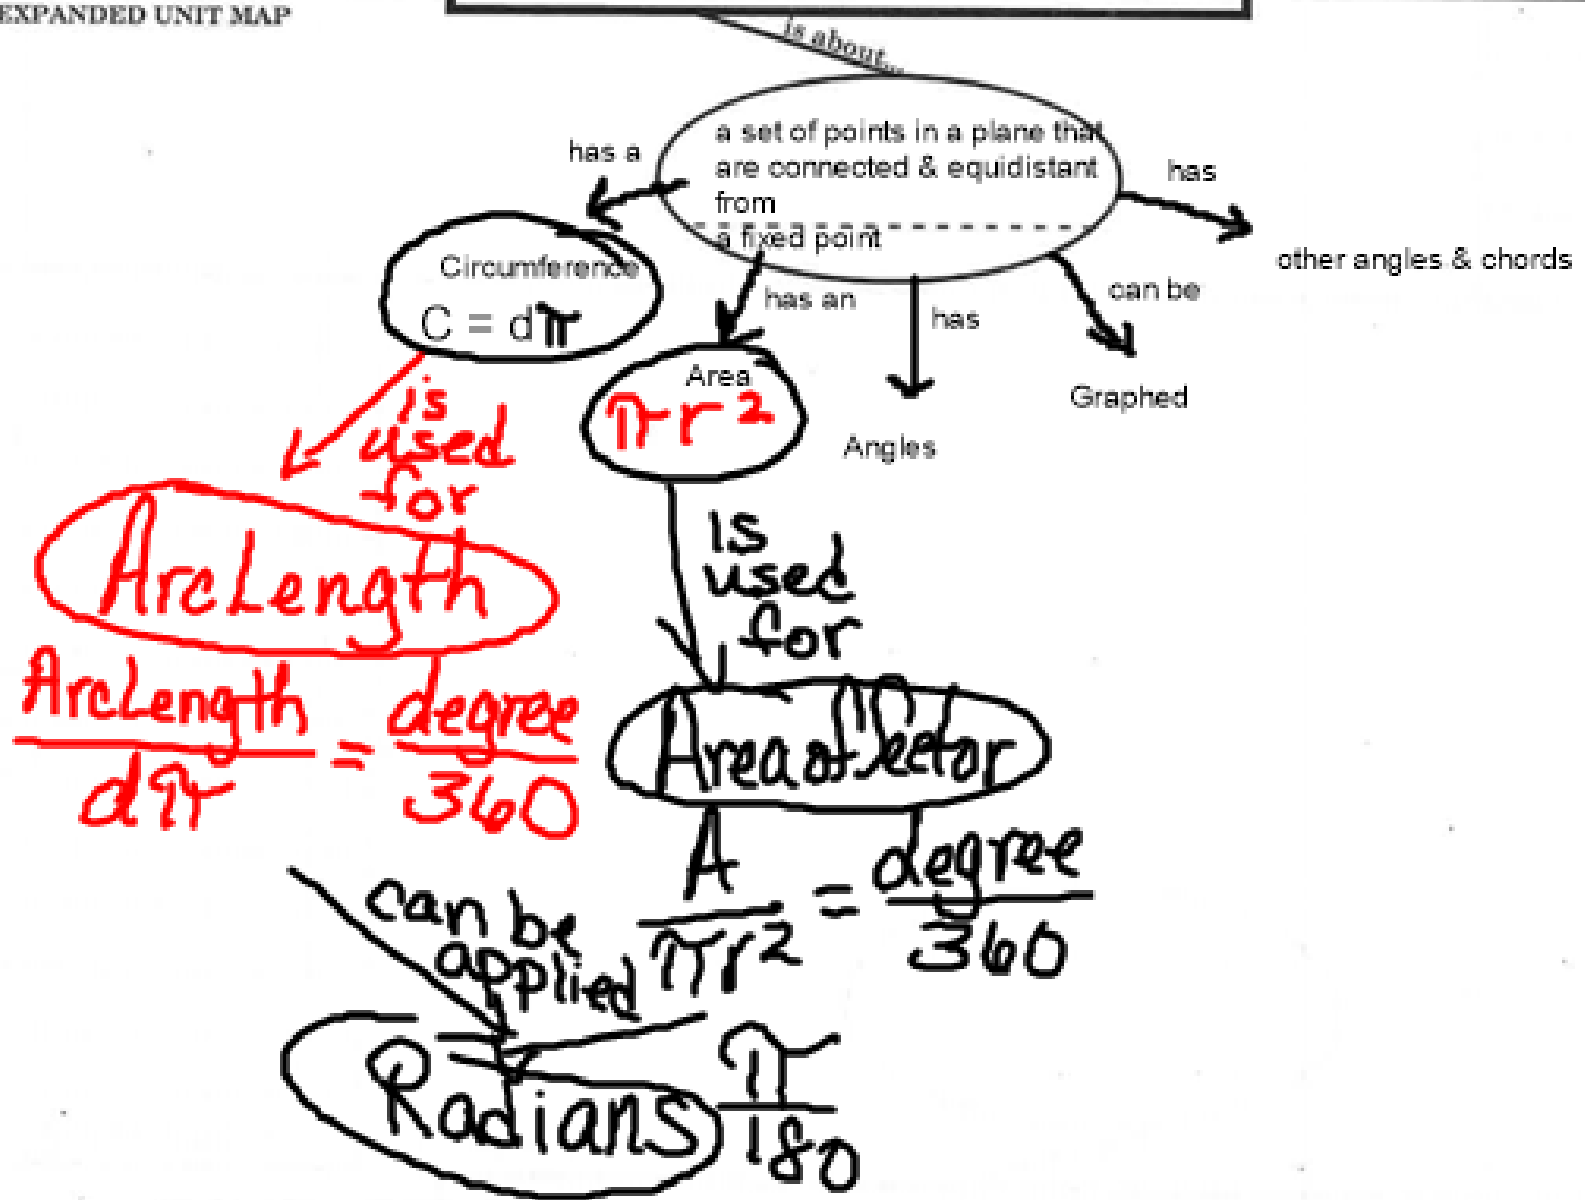 EXPANDED UNIT MAP
is about...
a set of points in a plane that
are connected & equidistant
from
a fixed point
has a
has
Circumference
C = dπ
other angles & chords
has an
has
can be
Area
πr²
Graphed
Angles
is
used
for
ArcLength
ArcLength
dπ
=
degree
360
is
used
for
Area of Sector
A
πr²
=
degree
360
can be
applied
Radians
π
180